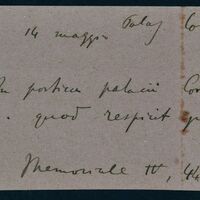 14 maggio Palaz Co
In porticu palacii Con
. quod respicit qu
Memoriale IV, 44